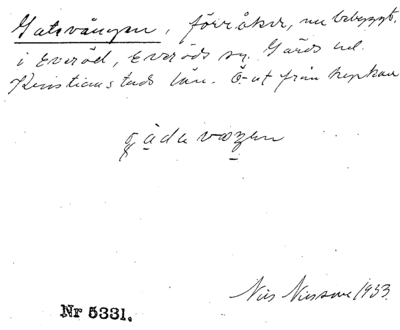 Gatevången, förr åker, nu bebyggt.
i Everöd, Everöds sn. Gärds hd.
Kristianstads län. Ö-ut från kyrkan
gadevången
Nils Nilsson 1933.
Nr 5331.